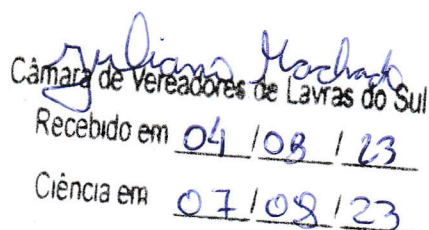 Juliana Machado
Câmara de Vereadores de Lavras do Sul
Recebido em 04/08/23
Ciência em 07/08/23